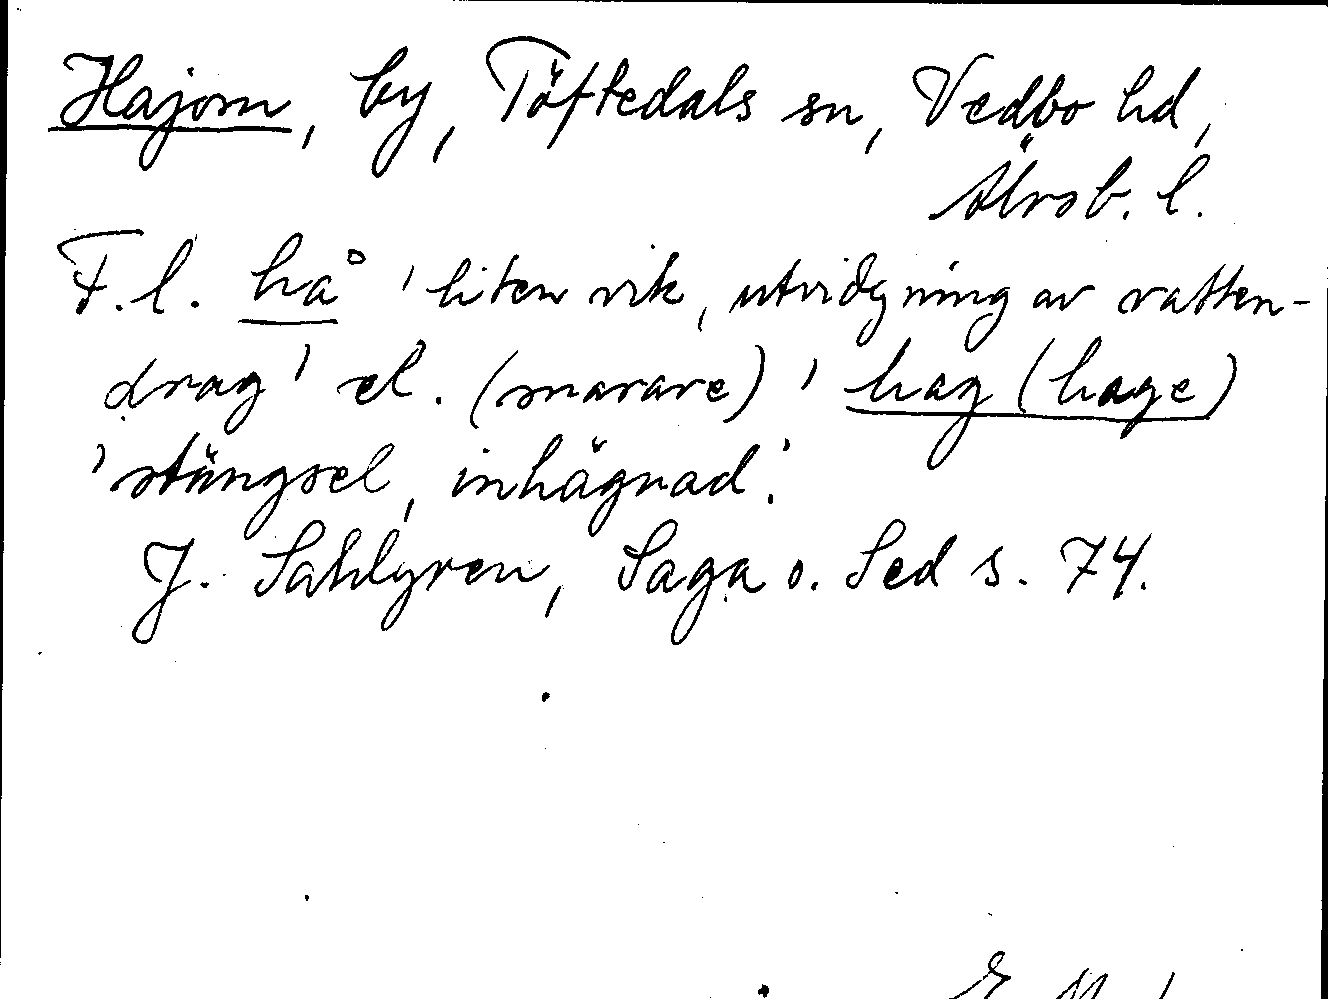 Hajom, by, Töftedals sn, Vedbo hd,
Älvsb. l.
F.l. hå 'liten vik, utvidgning av vatten-
drag' el. (snarare) 'hag (hage)
'stängsel, inhägnad'.
J. Sahlgren, Saga o. Sed s. 74.